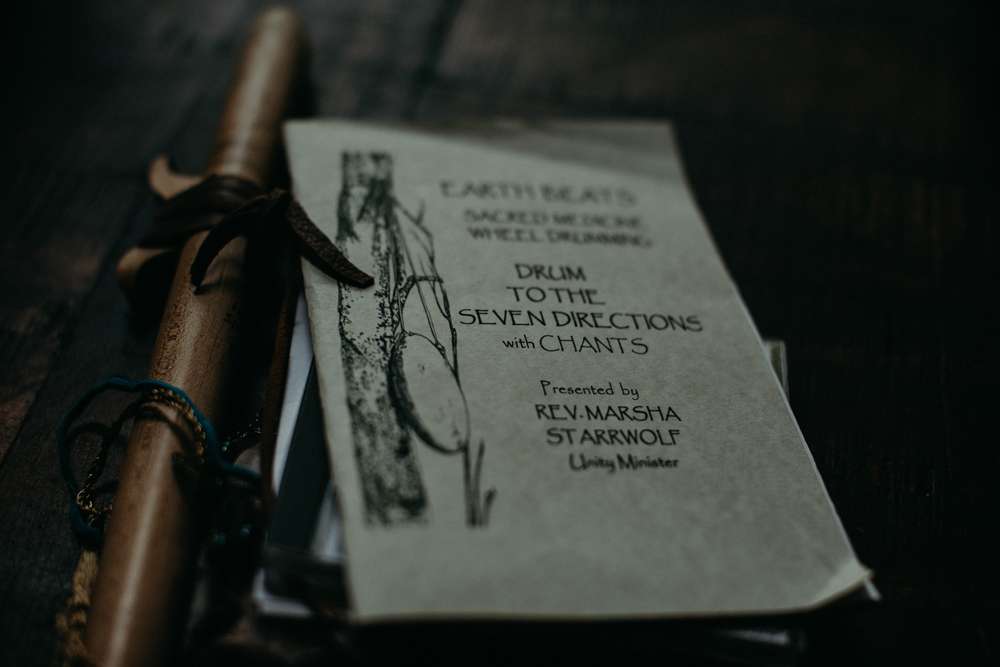 EARTH BEATS
SACRED MEDICINE
WHEEL DRUMMING
DRUM
TO THE
SEVEN DIRECTIONS
with CHANTS
Presented by
REV. MARSHA
STARRWOLF
Unity Minister